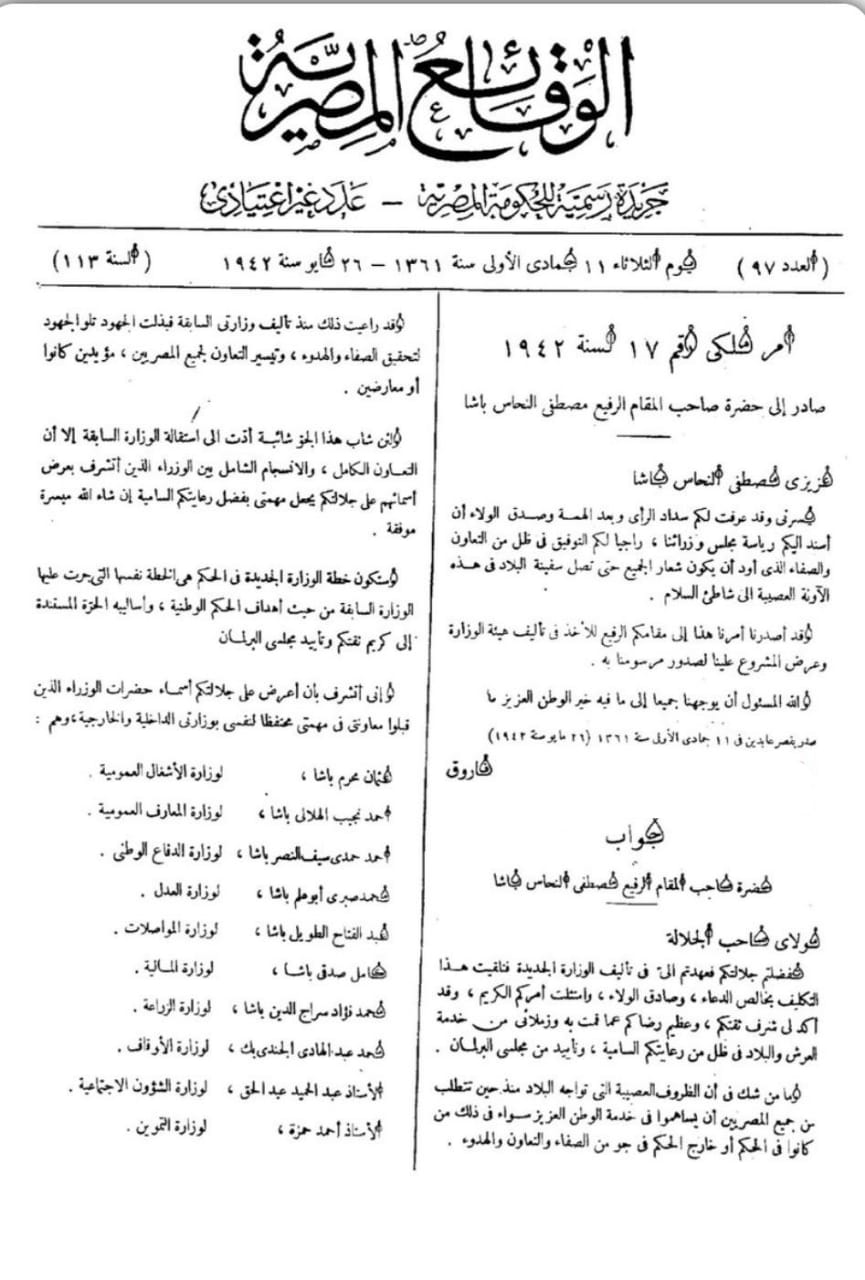 الوقائع المصرية
جريدة رسمية للحكومة المصرية — عدد غير اعتيادى
( العدد ٩٧ ) يوم الثلاثاء ١١ جمادى الأولى سنة ١٣٦١ – ٢٦ مايو سنة ١٩٤٢ ( السنة ١١٣ )
أمر ملكى رقم ١٧ لسنة ١٩٤٢
صادر إلى حضرة صاحب المقام الرفيع مصطفى النحاس باشا
عزيزى مصطفى النحاس باشا
يسرنى وقد عرفت لكم سداد الرأى وبعد الهمة وصدق الولاء أن
أسند اليكم رياسة مجلس وزرائنا ، راجيا لكم التوفيق فى ظل من التعاون
والصفاء الذى أود أن يكون شعار الجميع حتى تصل سفينة البلاد فى هذه
الآونة العصيبة الى شاطئ السلام .
وقد أصدرنا أمرنا هذا إلى مقامكم الرفيع للأخذ فى تأليف هيئة الوزارة
وعرض المشروع علينا لصدور مرسومنا به .
والله المسئول أن يوجهنا جميعا إلى ما فيه خير الوطن العزيز ما
صدر بقصر عابدين فى ١١ جمادى الأولى سنة ١٣٦١ (٢٦ مايو سنة ١٩٤٢)
فاروق
جواب
حضرة صاحب المقام الرفيع مصطفى النحاس باشا
مولاى صاحب الجلالة
تفضلتم جلالتكم فعهدتم الىّ فى تأليف الوزارة الجديدة فتلقيت هذا
التكليف بخالص الدعاء ، وصادق الولاء ، وامتثلت أمركم الكريم ، وقد
أكد لى شرف ثقتكم ، وعظيم رضاكم عما قمت به وزملائى من خدمة
العرش والبلاد فى ظل من رعايتكم السامية ، وتأييد من مجلسى البرلمان .
وما من شك فى أن الظروف العصيبة التى تواجه البلاد منذ حين تتطلب
من جميع المصريين أن يساهموا فى خدمة الوطن العزيز سواء فى ذلك من
كانوا فى الحكم أو خارج الحكم فى جو من الصفاء والتعاون والهدوء .
وقد راعيت ذلك منذ تأليف وزارتى السابقة فبذلت الجهود تلو الجهود
لتحقيق الصفاء والهدوء ، وتيسير التعاون لجميع المصريين ، مؤيدين كانوا
أو معارضين .
ولئن شاب هذا الجو شائبة أدّت الى استقالة الوزارة السابقة إلا أن
التعاون الكامل ، والانسجام الشامل بين الوزراء الذين أتشرف بعرض
أسمائهم على جلالتكم يجعل مهمتى بفضل رعايتكم السامية إن شاء الله ميسرة
موفقة .
وستكون خطة الوزارة الجديدة فى الحكم هى الخطة نفسها التى جرت عليها
الوزارة السابقة من حيث أهداف الحكم الوطنية ، وأساليبه الحرّة المستندة
إلى كريم ثقتكم وتأييد مجلسى البرلمان
وإنى أتشرف بأن أعرض على جلالتكم أسماء حضرات الوزراء الذين
قبلوا معاونتى فى مهمتى محتفظا لنفسى بوزارتى الداخلية والخارجية ، وهم :
عثمان محرم باشا ، لوزارة الأشغال العمومية .
أحمد نجيب الهلالى باشا ، لوزارة المعارف العمومية .
أحمد حمدى سيف النصر باشا ، لوزارة الدفاع الوطنى .
محمد صبرى أبو علم باشا ، لوزارة العدل .
عبد الفتاح الطويل باشا ، لوزارة المواصلات .
كامل صدقى باشا ، لوزارة المالية .
محمد فؤاد سراج الدين باشا ، لوزارة الزراعة .
محمد عبد الهادى الجندى بك ، لوزارة الأوقاف .
الأستاذ عبد الحميد عبد الحق ، لوزارة الشؤون الاجتماعية .
الأستاذ أحمد حمزة ، لوزارة التموين .